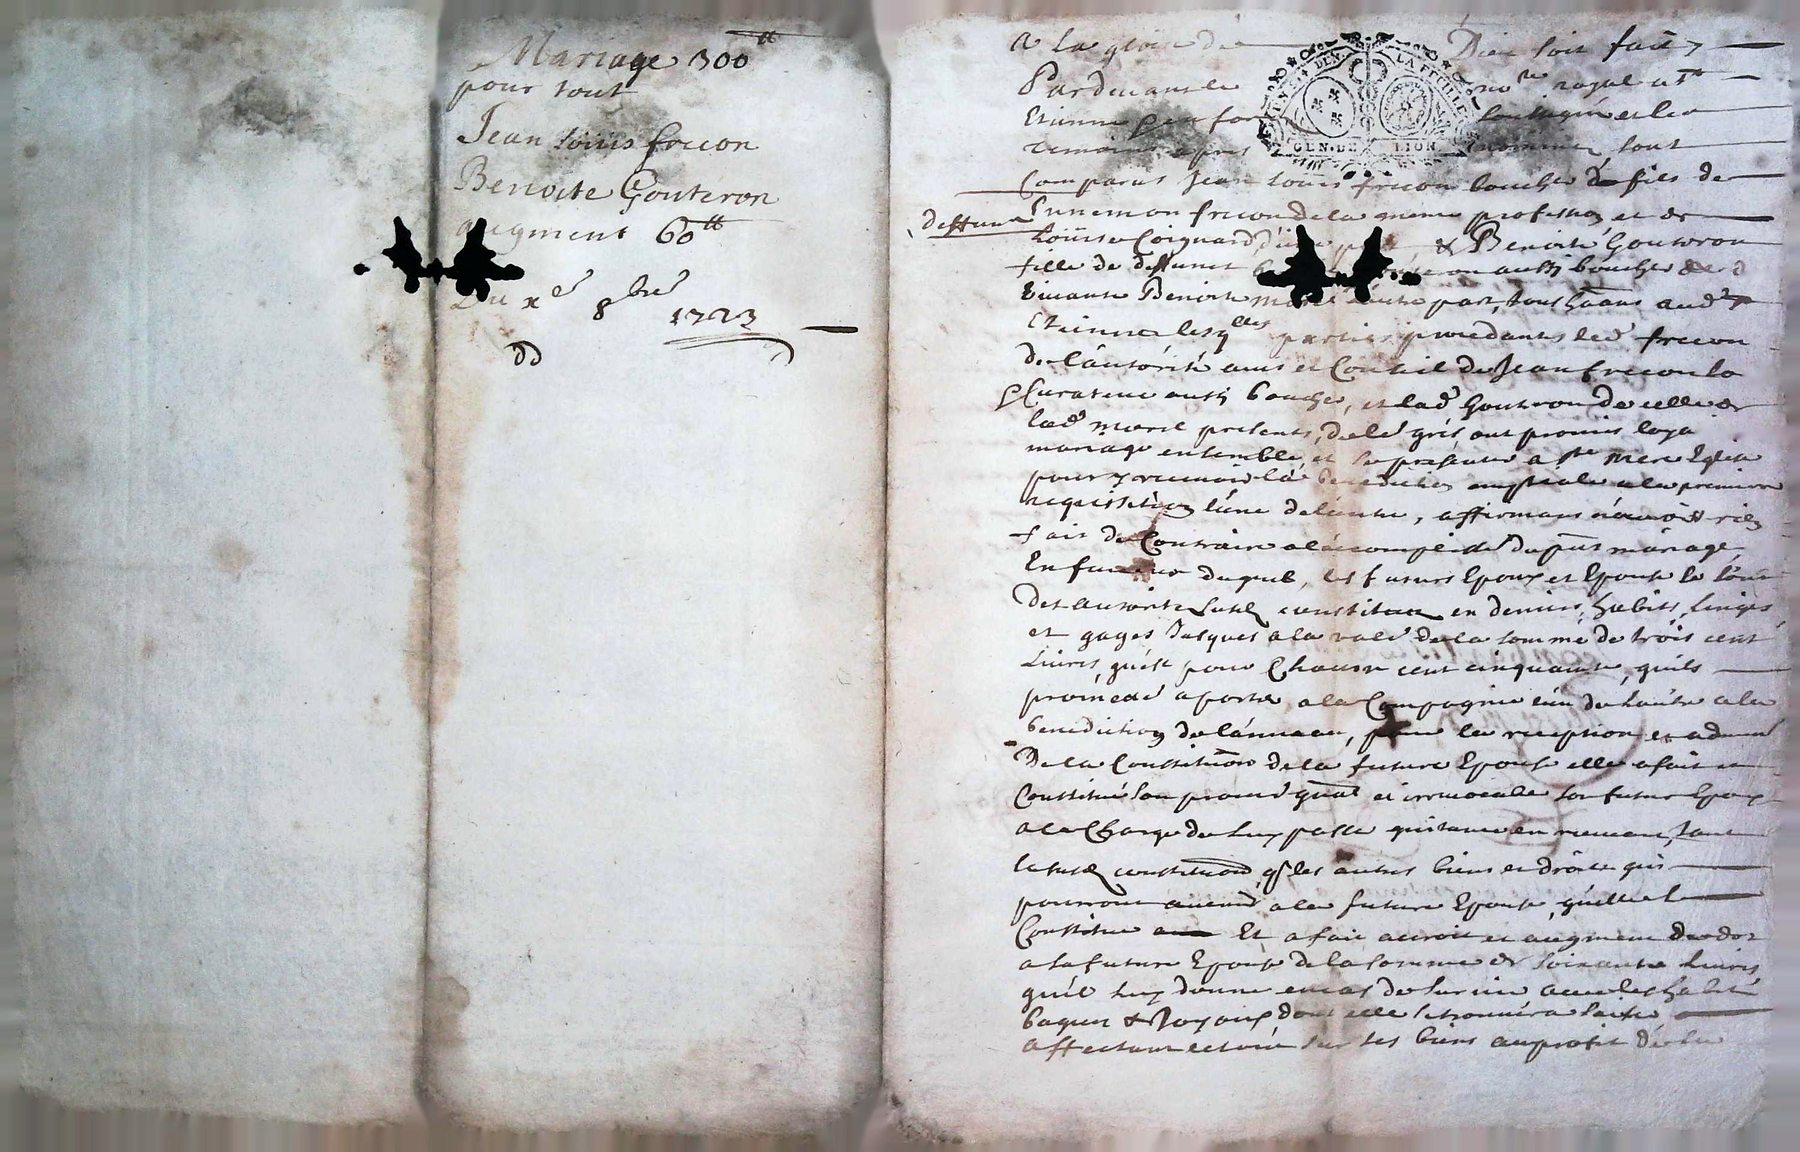 Mariage 300 tt
pour tout
Jean Louis frecon
Benoite Gouteron
augment 60 tt
Du xe 8bre
1723
A La gloire de Dieu soit fait
Pardevant le nore royal a St
Etienne en for soubsigné et les
temoins apres nommez, sont
Comparus Jean Louis frecon boucher fils de
deffunt Ennemon frecon de la meme profession et de
Louise Coignard d'une part & Benoite Gouteron
fille de deffunt aussi boucher
vivante Benoite d'autre part, tous
Etienne lesqlles parties procedantes led frecon
de l'autorité avis et Conseil de Jean frecon
Curateur aussi boucher, et lad Gouteron de celle de
lad presents, de gré, ont promis
mariage ensemble, et se presenter a ste mere Eglise
pour y recevoir la benediction nuptiale a la premiere
requisition l'une de l'autre, affirmans n'avoir rien
fait de Contraire a l'accomplissemt du pnt mariage,
En faveur duquel, les futurs Epoux et Epouse se sont
des autorités susd constituez en deniers, habits, linges
et gages Jusques a la valr de la somme de trois cent
Livres, qu'est pour Chacun cent cinquante, qu'ils
apporter a la Compagnie l'un de l'autre a la
benediction de l'anneau, pour la reception et
De la Constituon de la future Epouse elle a fait et
Constitué son procur gnal et irrevocable son futur Epoux
a la Charge de luy passer quitance en recevant, tant
la susd constituon q les autres biens et droits qui
pourront avenir a la future Epouse, qu'elle se
Constitue Et a fait accroit et augment de dot
a sa future Epouse de la somme de soixante Livres
qu'il luy donne en cas de survie avec les habits
bagues & Joyaux dont elle se trouvera saisie
affectant sur ses biens au profit de la
GEN. DE LION
LA FEUILLE